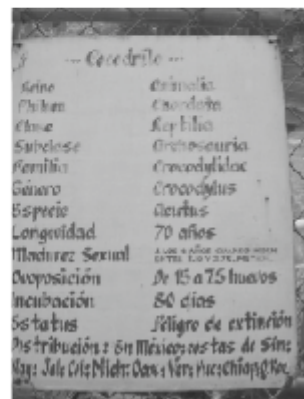 --- Cocodrilo ---
Reino Animalia
Phikum Chordata
Clase Reptilia
Subclase Archosauria
Familia Crocodylidae
Género Crocodylus
Especie Acutus
Longevidad 70 años
Madurez Sexual A LOS
Ovoposición De 15 a 75 huevos
Incubación 80 días
Estatus Peligro de extinción
Distribución: En México: costas de Sin;
Nay; Jal; Col; Mich; Oax; Ver; Chiap; Q. Roo